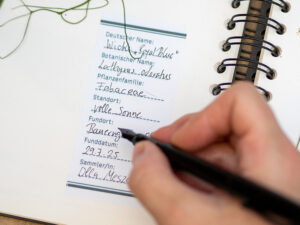 Deutscher Name:
Wicke „Royal Blue"
Botanischer Name:
Lathyrus odoratus
Pflanzenfamilie:
Fabaceae
Standort:
volle Sonne
Fundort:
Funddatum:
29.7.25
Sammler/in: